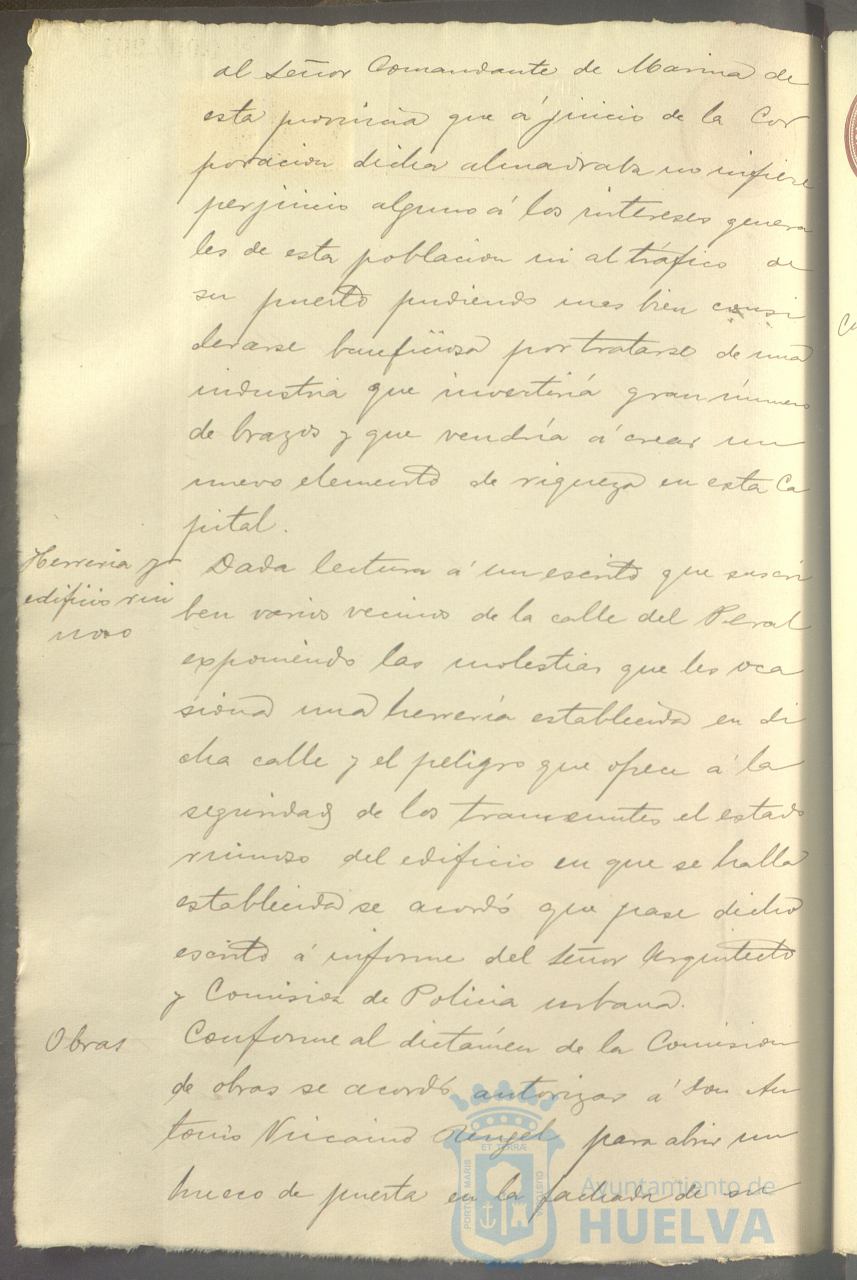 al Señor Comandante de Marina de
esta provincia que á juicio de la Cor
poracion dicha almadraba no infiere
perjuicio alguno á los intereses genera
les de esta poblacion ni al tráfico de
su puerto pudiendo mas bien consi
derarse beneficiosa por tratarse de una
industria que invertiria gran número
de brazos y que vendría á crear un
nuevo elemento de riqueza en esta Ca
pital.
Herreria y
edificio rui
noso
Dada lectura á un escrito que suscri
ben varios vecinos de la calle del Peral
exponiendo las molestias que les oca
siona una herrería establecida en di
cha calle y el peligro que ofrece á la
seguridad de los transeuntes el estado
ruinoso del edificio en que se halla
establecida se acordó que pase dicho
escrito á informe del Señor Arquitecto
y Comision de Policia urbana.
Obras
Conforme al dictámen de la Comision
de obras se acordó autorizar á Don An
tonio Vizcaino Rengel para abrir un
hueco de puerta en la fachada de su
PORTUS MARIS
ET TERRÆ
CUSTODIA
Ayuntamiento de
HUELVA